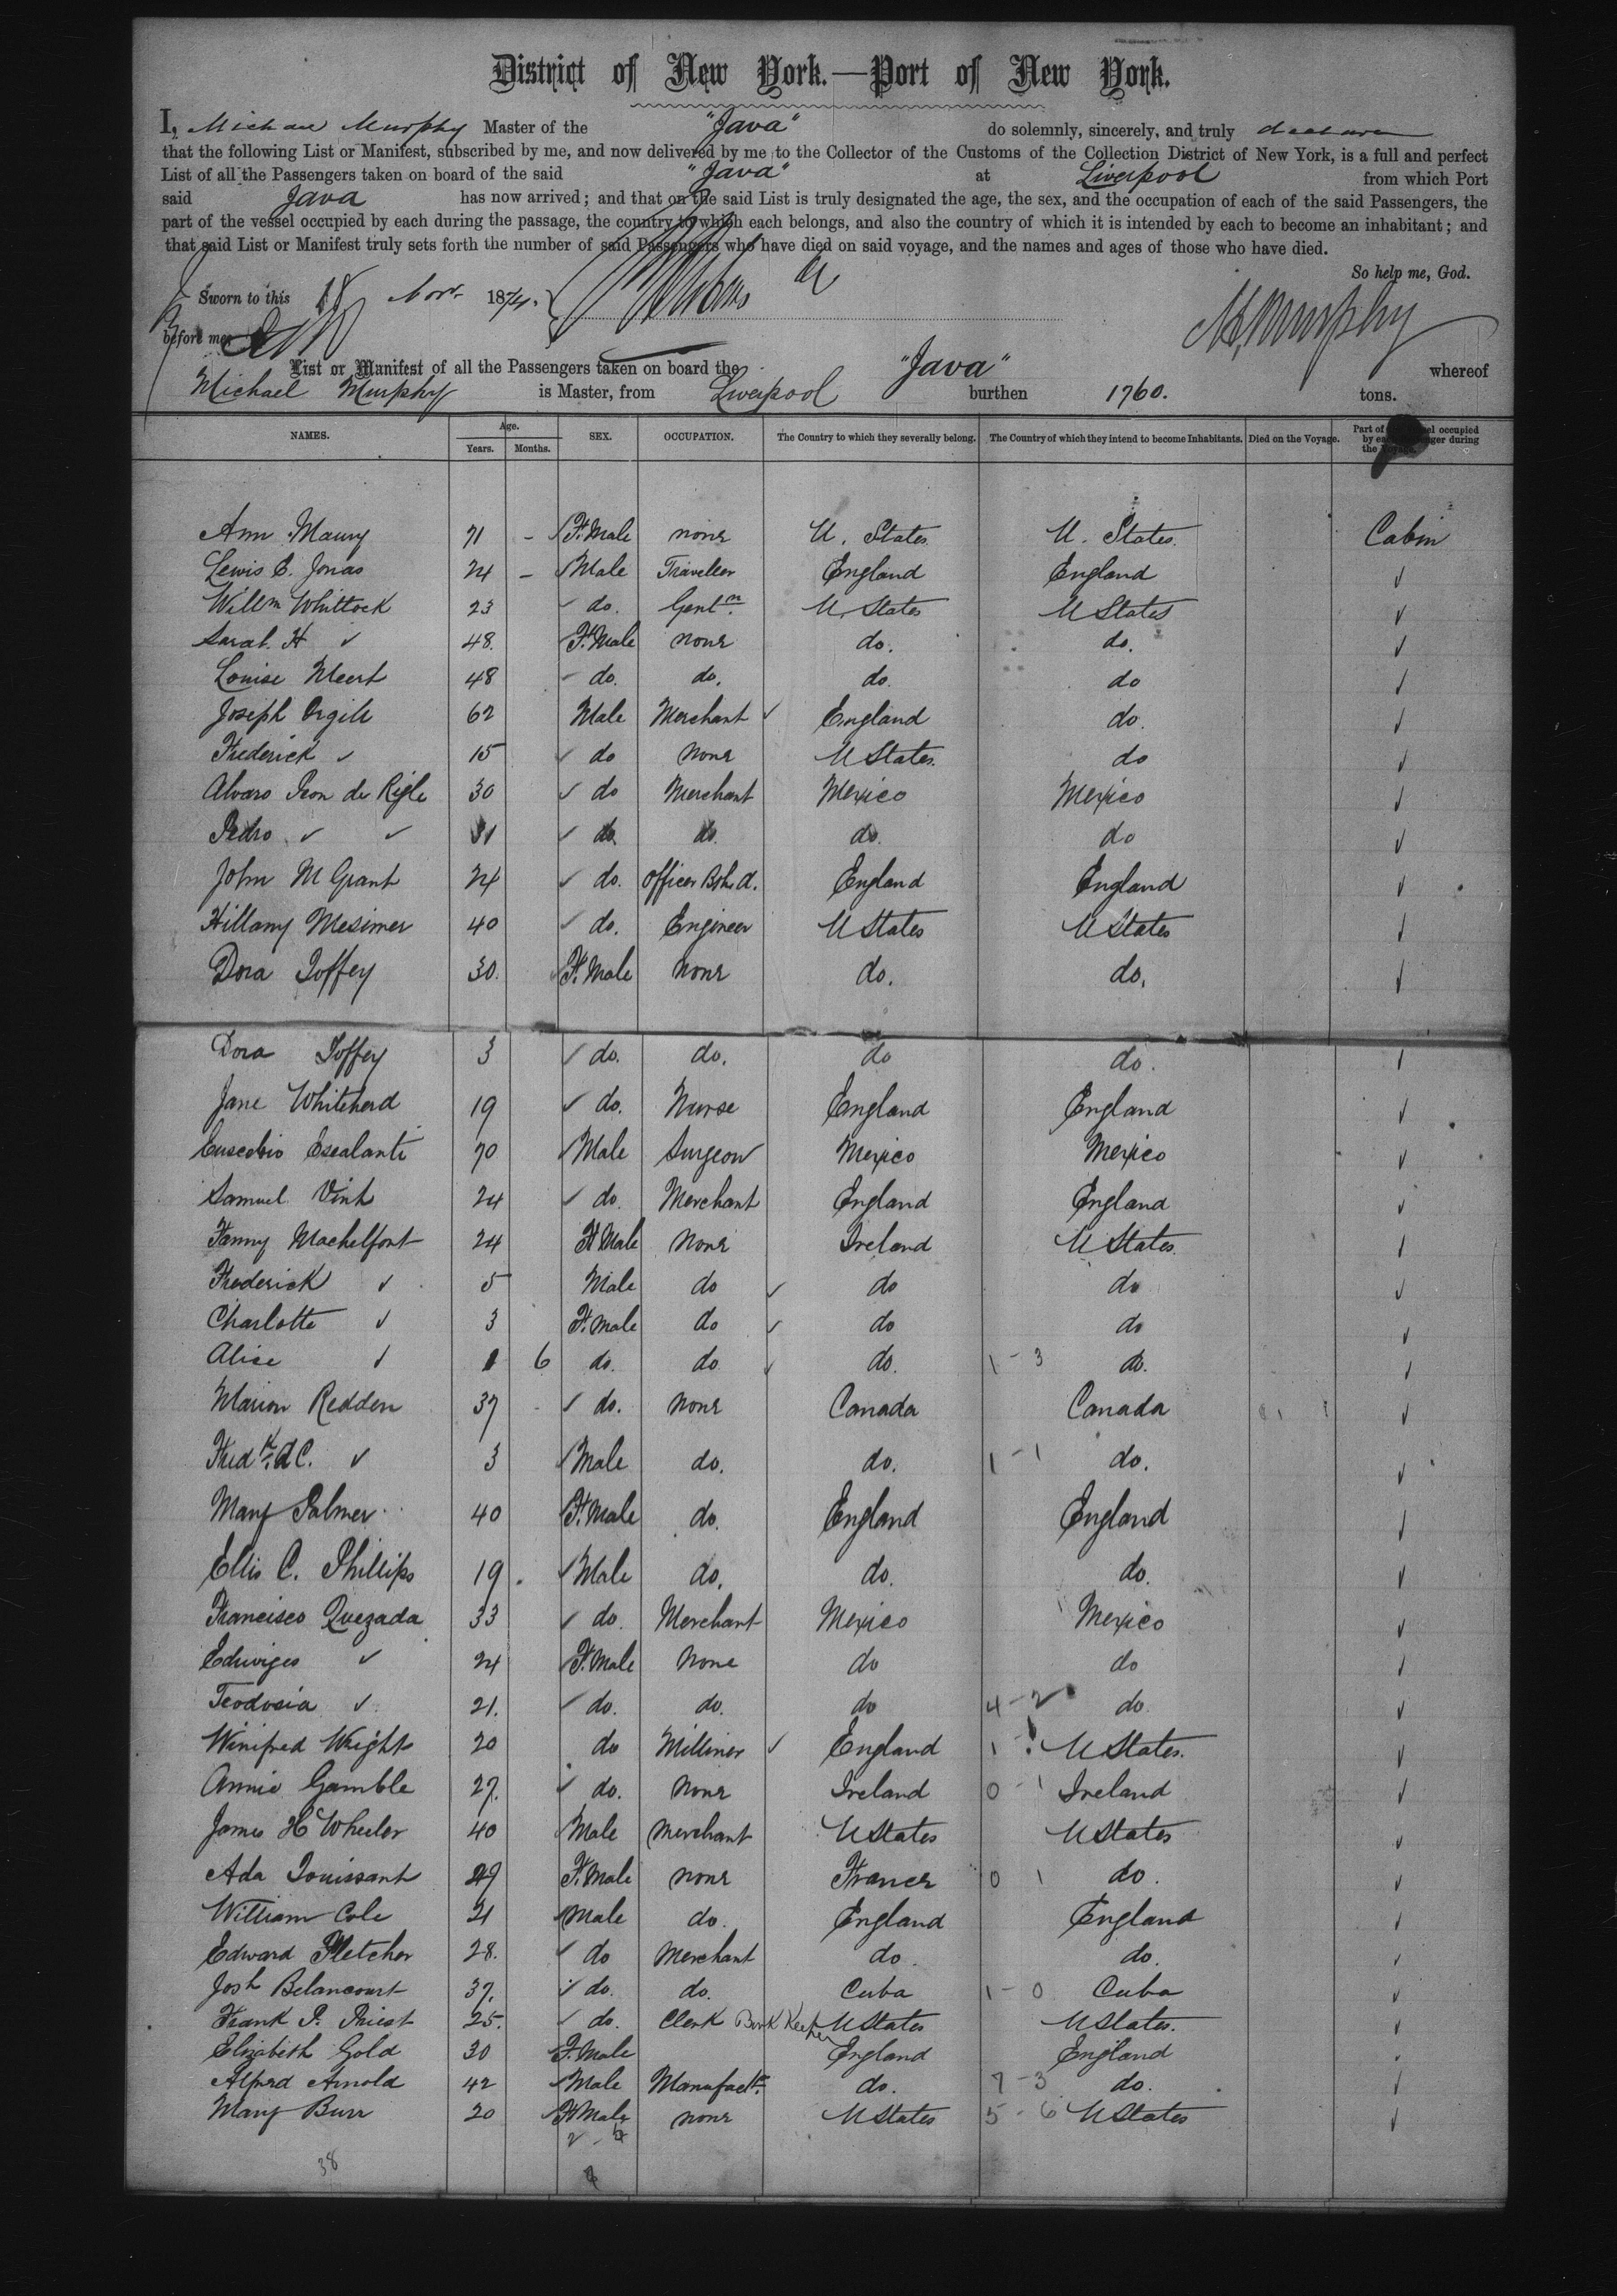 District of New York.—Port of New York.
I, Michael Murphy Master of the "Java" do solemnly, sincerely, and truly declare
that the following List or Manifest, subscribed by me, and now delivered by me to the Collector of the Customs of the Collection District of New York, is a full and perfect
List of all the Passengers taken on board of the said "Java" at Liverpool from which Port
said Java has now arrived; and that on the said List is truly designated the age, the sex, and the occupation of each of the said Passengers, the
part of the vessel occupied by each during the passage, the country to which each belongs, and also the country of which it is intended by each to become an inhabitant; and
that said List or Manifest truly sets forth the number of said Passengers who have died on said voyage, and the names and ages of those who have died.
So help me, God.
Sworn to this 18 Nov 1874.
before me M. Murphy
List or Manifest of all the Passengers taken on board the "Java" whereof
Michael Murphy is Master, from Liverpool burthen 1760. tons.
NAMES. Age. Years. Months. SEX. OCCUPATION. The Country to which they severally belong. The Country of which they intend to become Inhabitants. Died on the Voyage. Part of occupied by each during the Voyage.
Ann Maury 71 - F. Male none U. States U. States. Cabin
Lewis E. Jonas 24 - Male Traveller England England ✓
Willm Whittock 23 ✓ do. Gentn U. States U States ✓
Sarah H ✓ 48. F. Male none do. do. ✓
Louise Meert 48 do. do. do. do ✓
Joseph Orgill 62 Male Merchant ✓ England do. ✓
Frederick ✓ 15 ✓ do none U States. do ✓
Alvaro Peon de Rigle 30 ✓ do Merchant Mexico Mexico ✓
Pedro ✓ ✓ 31 ✓ do. do. do. do ✓
John M Grant 24 ✓ do. Officer England England ✓
Hillany Mesimer 40 ✓ do. Engineer U States U States ✓
Dora Toffey 30. ✓ F. Male none do. do. ✓
Dora Toffey 3 ✓ do. do. do do. ✓
Jane Whitehead 19 ✓ do. Nurse England England ✓
Euscebio Escalanti 70 ✓ Male Surgeon Mexico Mexico ✓
Samuel Vink 24 ✓ do. Merchant England England ✓
Fanny Machelfont 24 F Male none Ireland U States. ✓
Frederick ✓ 5 Male do ✓ do do ✓
Charlotte ✓ 3 F. Male do ✓ do do ✓
Alice ✓ 1 6 do. do ✓ do. 1 - 3 do. ✓
Marion Redden 37 ✓ do. none Canada Canada ✓
Fredk. A C. ✓ 3 ✓ Male do. do. 1 - 1 do. ✓
Mary Palmer 40 F. Male do. England England ✓
Ellis C. Phillips 19 ✓ Male do. do. do. ✓
Francisco Quezada 33 ✓ do. Merchant Mexico Mexico ✓
Eduviges ✓ 24 ✓ F. Male None do do ✓
Teodosia ✓ 21. ✓ do. do. do 4 - 2 do. ✓
Winifred Wright 20 do Milliner ✓ England 1 - ! U States. ✓
Annie Gamble 27. ✓ do. none Ireland 0 - 1 Ireland ✓
James H Wheeler 40 Male Merchant U States U States ✓
Ada Touissant 29 F. Male none France 0 1 do. ✓
William Cole 21 ✓ Male do. England England ✓
Edward Fletcher 28. ✓ do Merchant do. do. ✓
Josh Belancourt 37. ✓ do. do. Cuba 1 - 0 Cuba ✓
Frank P. Priest 25. ✓ do. Clerk Book Keeper U States U States. ✓
Elizabeth Gold 30 F. Male England England
Alfred Arnold 42 ✓ Male Manufactr. do. 7 - 3 do. ✓
Mary Burr 20 ✓ F. Male none U States 5 - 6 U States ✓
38